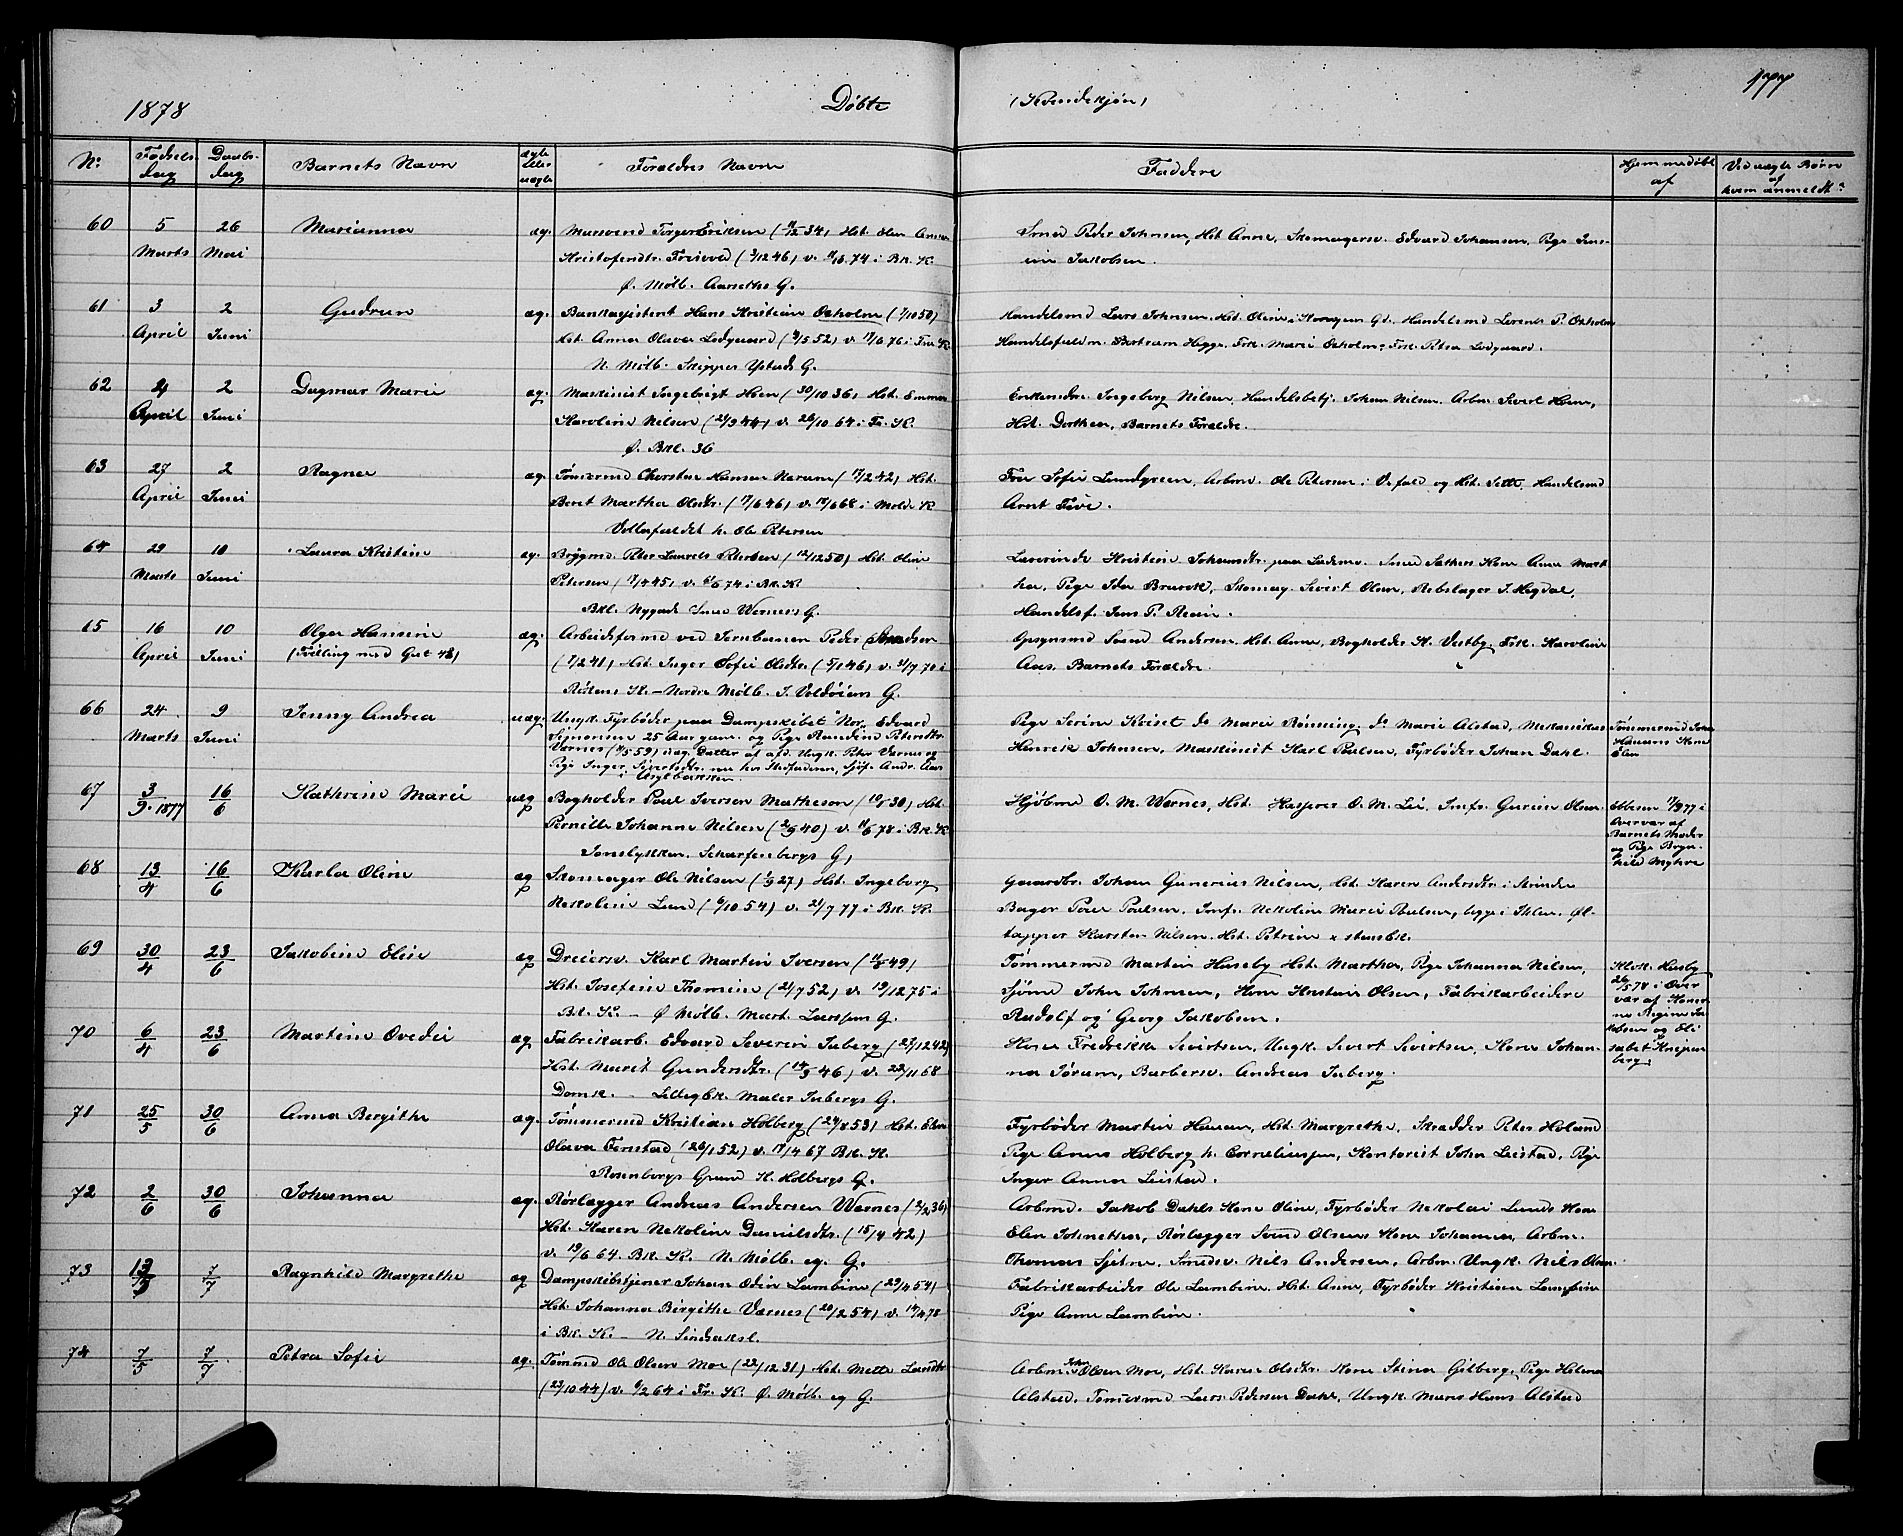 1878
Døbte
(Kvindekjøn)
177
No
Fødsels dag
Daabs- dag
Barnets Navn
ægte eller uægte
Foreldres Navne
Faddere
Hjemmedøbt af
Ved uægte Børn af hvem anmeldt
60 5 Marts 26 Mai Marianna æg.
Kristofersdtr.
Ø. Mølb. G.
Smed Peder Johnsen, Hst. Anne, Skomagersv. Edvard Johansen, Pige Jens-
ine Jakobsen.
61 3 April 2 Juni Gudrun æg. Bankassistent Hans Kristian Oxholm (7/10 50)
Hst. Anna Olava Lodgaard v. i Frue K.
N. Mølb. Skipper Ystads G.
Handelsmd Lars Johnsen, Hst. Oline, Handelsmd Lorents P. Oxholm
Handelsfuldm. Bertram Higge, Frk. Marie Oxholm, Frk. Petra Lodgaard.
62 4 April 2 Juni Dagmar Marie æg. Maskinist Ingebrigt Hoen (30/10 36) Hst. Emma
Karoline Nilsen v. 26/10 64 i Fr. K.
Ø. Bkl. 36
Ingeborg Nilsen, Handelsbetj. Johan Nilsen, Arbm. Sivert Hoen,
Hst. Dorthea, Barnets Foreldre.
63 27 April 2 Juni Ragna æg. Tømermd Thorsten Hansen (17/2 42) Hst.
Berit Martha Olsdtr. v. i Molde K.
Vollafaldet h. Ole Petersen
Fru Sofie Lundgreen, Arbm. Ole Petersen i og Hst. Handelsmd
Arnt
64 29 Marts 10 Juni Laura Kristine æg. Brygmd. Peter Laurits Petersen (12/12 50) Hst. Oline
Petersen v. i Bk. K.
Bkl. Nygade Smed Wernes G.
Lærerinde Kristine Johansdtr. paa Lademo. Smed Sæthers Kone Anne Mart
ha, Pige Ida Skomag. Sivert Olsen, Rebslager I. Hegdal,
Handelsf. Jens P.
65 16 April 10 Juni Olga Hansine
(Tvilling med Gut 48) æg. Arbeidsformd ved Jernbanen Peder
(7/2 41) Hst. Inger Sofie Olsdtr. v. 31/7 70 i
K. – Nordre Mølb. G.
Opsynsmd Svend Andersen, Hst. Anne, Bogholder H. Vestby, Frk. Karoline
Aas, Barnets Foreldre.
66 24 Marts 9 Juni Jenny Andrea uæg. Ungk. Fyrbøder paa Dampskibet "Nor" Edvard
Simonsen 25 Aar gam. og Pige Randine Petersdtr.
Værnes uæg. Datter af afd. Ungk. Peter Værnes og
Pige Inger Sivertsdtr. nu hos Stedfaderen, Andr. Aas
i
Pige Serine Kviset do Marie Rønning, do Marie Alstad, Mekanikus
Henrik Johnsen, Maskinist Karl Paulsen, Fyrbøder Johan Dahl.
Tømmermd Johs
Hansens Kone
Elen
67 3/9. 1877 16/6 Kathrine Marie uæg Bogholder Paul Iversen Matheson Hst.
Pernille Johanne Nilsen (2/9 40) v. i Bk. K.
Scharfenbergs G,
Kjøbmd O. M. Wernes, Hst. Kasper O. M. Lie, Jmfr. Gurine Olsen
Ebbesen 17/9 77 i
Overvær af
Barnets Moder
og Pige Bryn-
hild Myhre
68 13/4 16/6 Karla Oline æg Skomager Ole Nilsen Hst. Ingeborg
Nekoline Lund (6/10 54) v. 21/7 77 i Bk. K.
Gaardbr. Johan Gunerius Nilsen, Hst. Karen Andersdtr. i Strinden
Bager Paul Poulsen, Jmfr. Nekoline Marie Paulsen, begge i Ihlen, Øl-
tapper Karsten Nilsen, Hst. Petrine
69 30/4 23/6 Jakobine Elise æg Dreiersv. Karl Martin Iversen
Hst. Josefine Thomine (21/7 52) v. 19/12 75 i
Bk. K. – Ø Mølb. Mart. Larssens G.
Tømmermd Martin Huseby Hst. Martha, Pige Johanna Nilsen,
Sjømd John Johnsen, Kone Kristine Olsen, Fabrikarbeidere
Rudolf og Georg Jakobsen.
Klok. Husby
26/5 78 i Over
vær af Koner-
ne Regine Ja-
kobsen og Eli
sabet Knipen-
berg
70 6/4 23/6 Martine Ovedie æg Fabrikarb. Edvard Severin Tuberg (27/12 42)
Hst. Marit Gundersdtr. (14/9 46) v. 22/11 68
Domk. – Lillegbk. Maler Tubergs G.
Kone Fredrikke Sivertsen, Ungk. Sivert Sivertsen, Kone Johan-
na Sørum, Barbersv. Andreas Tuberg.
71 25/5 30/6 Anna Bergithe æg. Tømmermd Kristian Holberg Hst. Elen
Olava Fenstad (26/1 52) v. Bk. K.
Rosenborgs Grund H. Holbergs G.
Fyrbøder Martin Hansen, Hst. Margrethe, Skrædder Peter Holand
Pige Anna Holberg h. Corneliussen, Kontorist John Leistad, Pige
Inger Anna Leistad.
72 2/6 30/6 Johanna æg. Rørlægger Andreas Andersen Wærnes (2/2 36)
Hst. Karen Nekoline Danielsdtr. (15/4 42)
v. 19/6 64 Bk. K. N. Mølb. eg. G.
Arbmd. Jakob Dahls Kone Oline, Fyrbøder Nekolai Lunds Kone
Elen Johnetta, Rørlægger Svend Olsens Kone Johanna, Arbm.
Thomas Sjetne, Smedsv. Nils Andersen, Arbm. Ungk. Nils Olsen.
73 13/5 7/7 Ragnhild Margrethe æg Dampskibstjener Johan Odin Lambine (23/4 54)
Hst. Johanna Birgithe Værnes (20/2 54) v. 14/4 78
i Bk. K. – N.
Fabrikarbeider Ole Lambine, Hst. Anne, Fyrbøder Kristian Lambine
Pige Anne Lambine.
74 7/5 7/7 Petra Sofie æg. Tømmd Ole Olsen Moe (23/12 31) Hst. Mette Larsdtr
(23/10 44) v. 6/2 64 i Fr. K. Ø. Mølb. eg G.
Arbm. John Olsen Moe, Hst. Karen Olsdtr. Kone Stina Gilberg, Pige Helena
Alstad, Tømermd Lars Pedersen Dahl, Ungk. Murer Hans Alstad